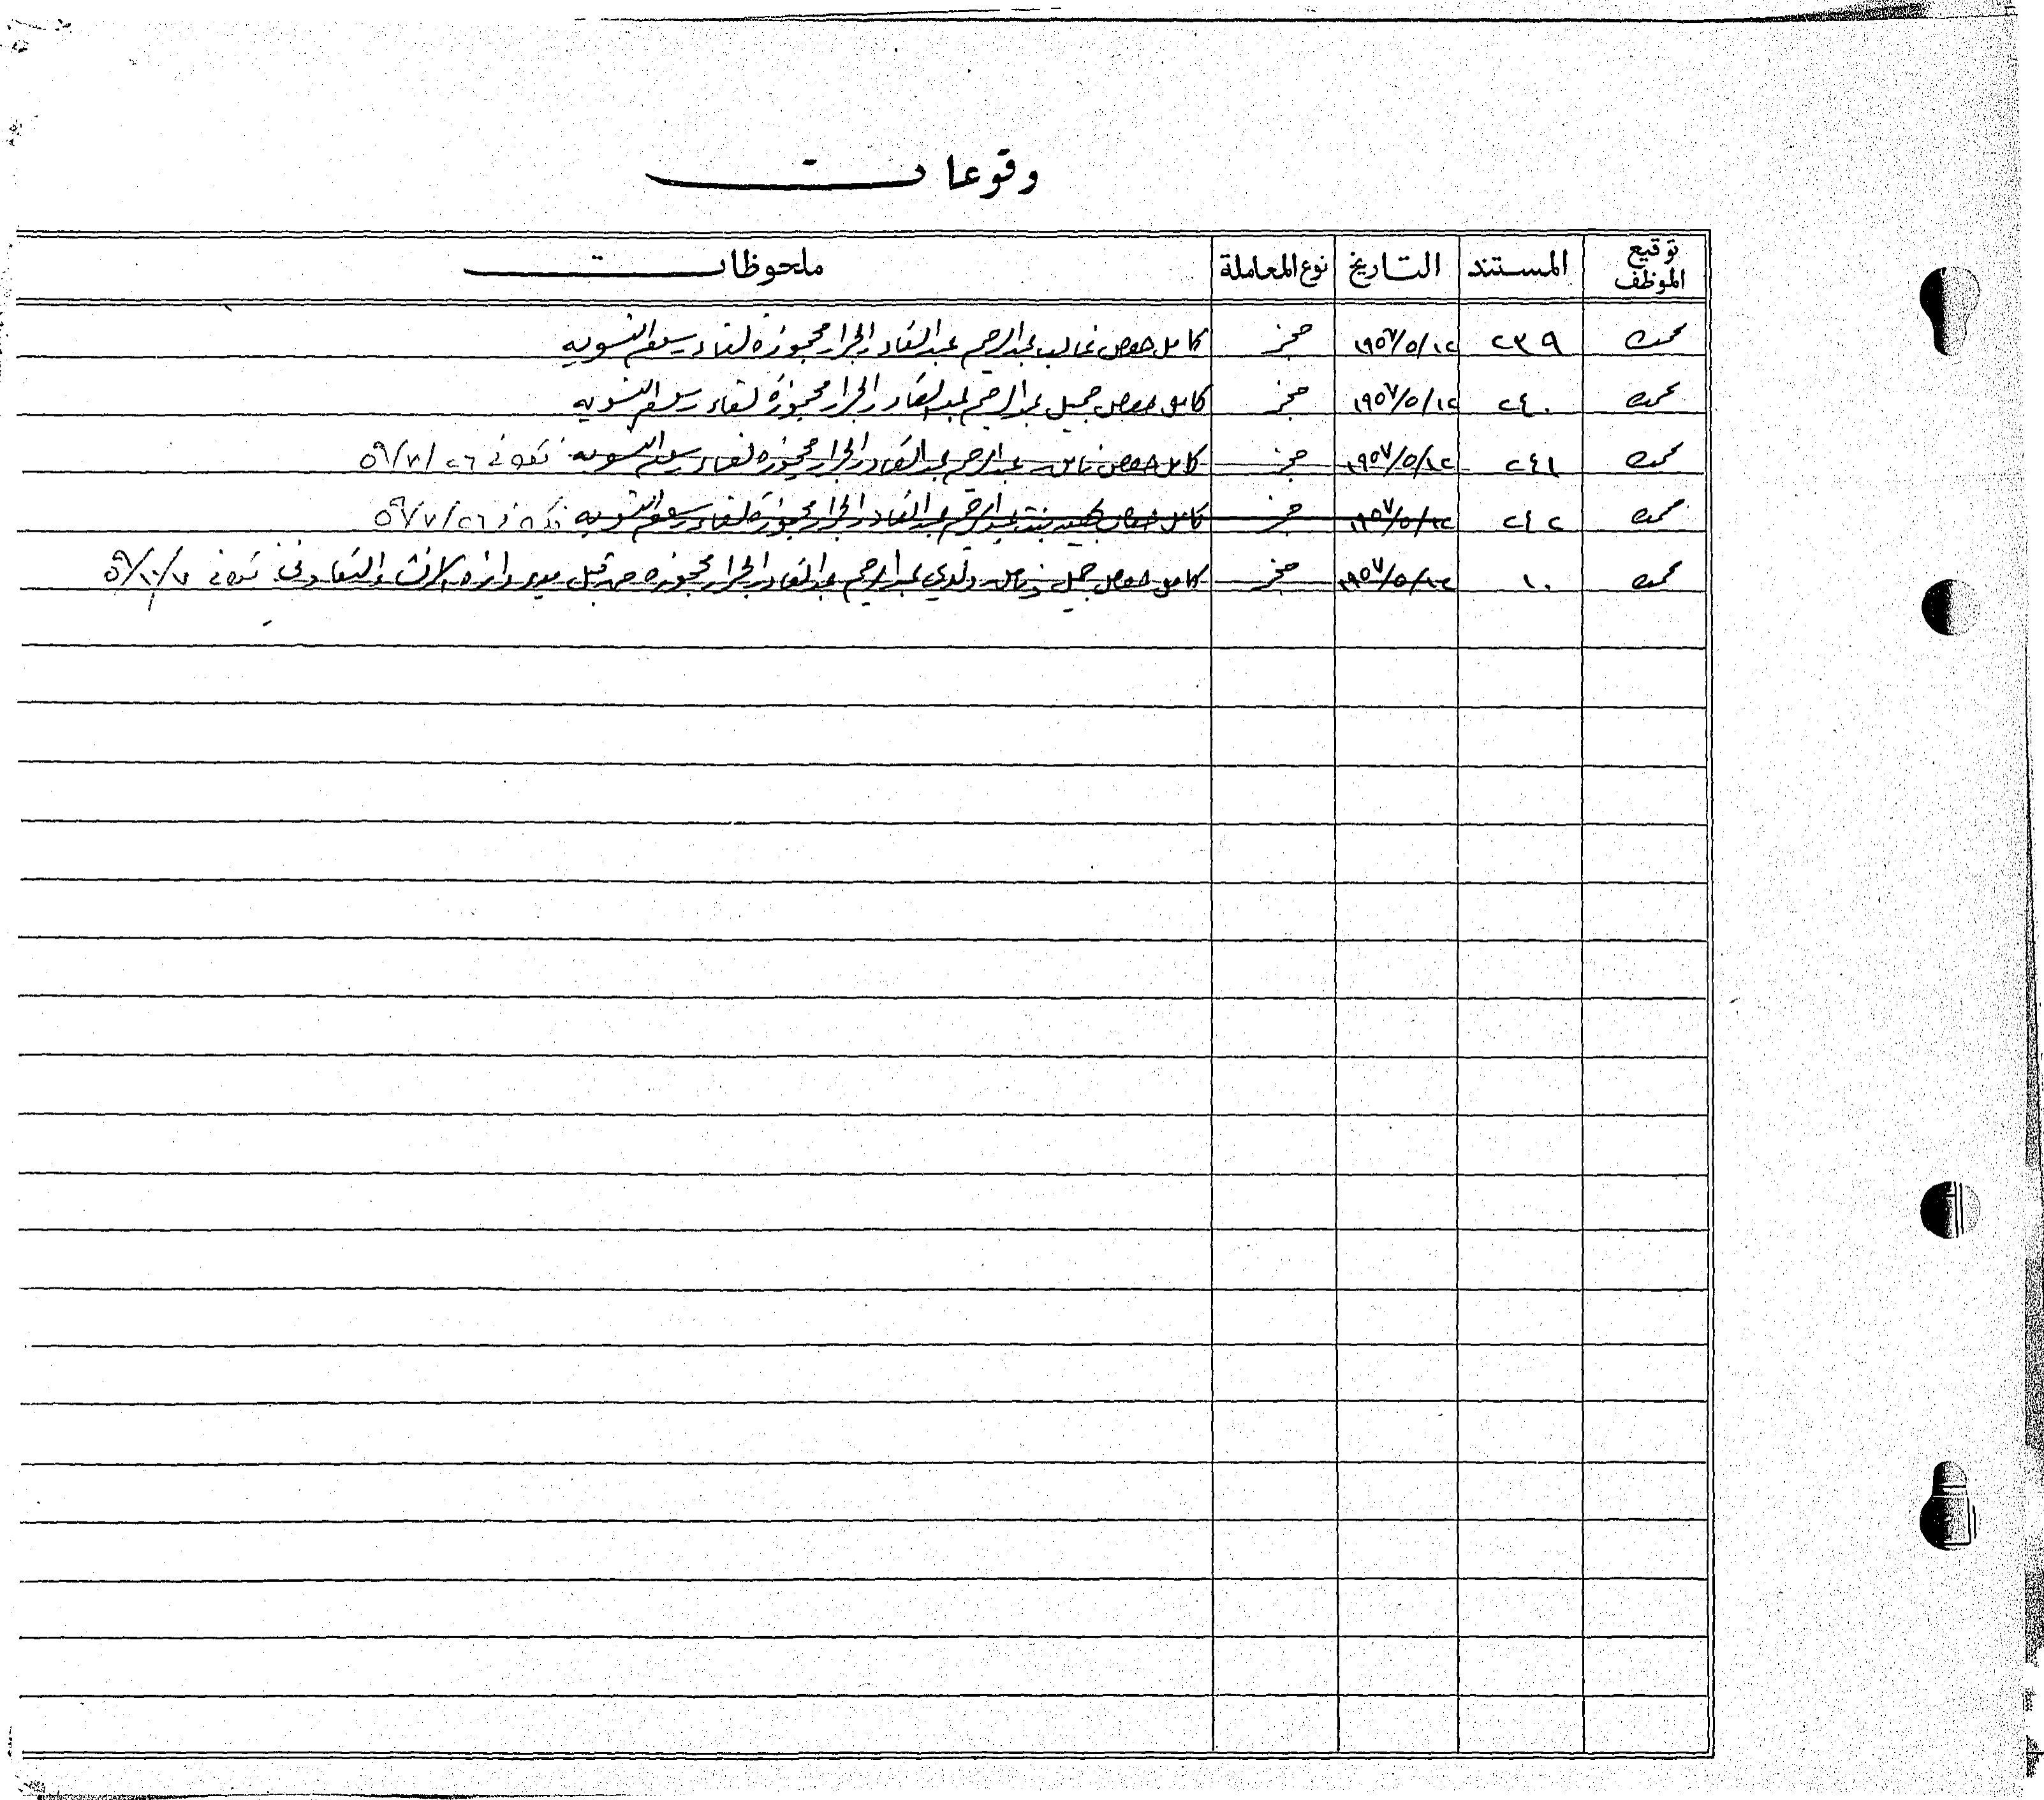 وقوعات
توقيع الموظف المستند التاريخ نوع المعاملة ملحوظات
محمد ٢٣٩ ١٩٥٧/٥/١٢ حجز كامل حصص غالب عبدالرحيم عبدالقادر الجرار محجوزة لقاء رسوم التسويه
محمد ٢٤٠ ١٩٥٧/٥/١٢ حجز كامل حصص جميل عبدالرحيم عبدالقادر الجرار محجوزة لقاء رسوم التسويه
محمد ٢٤١ ١٩٥٧/٥/١٢ حجز كامل حصص عبدالرحيم عبدالقادر الجرار محجوزة لقاء رسوم التسويه في ٥٩/٧/٢٦
محمد ٢٤٢ ١٩٥٧/٥/١٢ حجز كامل حصص بنت عبدالرحيم عبدالقادر الجرار محجوزة لقاء رسوم التسويه في ٥٩/٧/٢٦
محمد ١٠ ١٩٥٧/٥/١٢ حجز كامل حصص جميل ولدي عبدالرحيم عبدالقادر الجرار محجوزه من قبل مدير دائرة